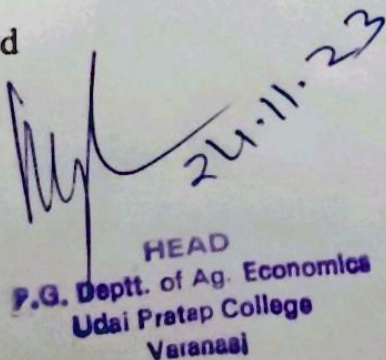 d
24.11.23
HEAD
P.G. Deptt. of Ag. Economics
Udai Pratap College
Varanasi